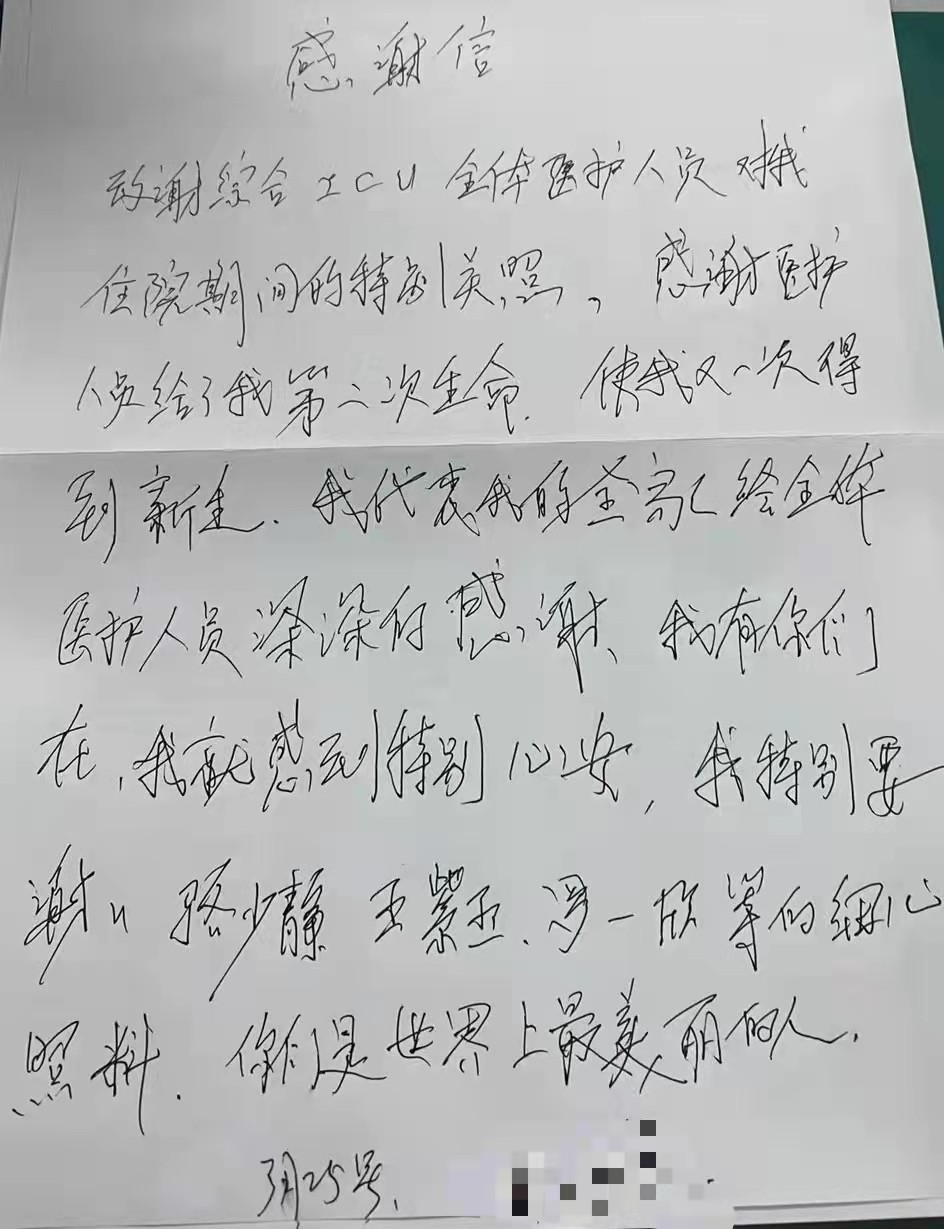 感谢信
致谢综合ICU全体医护人员对我
住院期间的特别关照，感谢医护
人员给了我第二次生命. 使我又一次得
到新生. 我代表我的全家给全体
医护人员深深的感谢、我有你们
在，我就感到特别心安，我特别要
谢谢 骆少静 王紫丞、 一欣等的细心
照料. 你们是世界上最美丽的人.
3月25号.